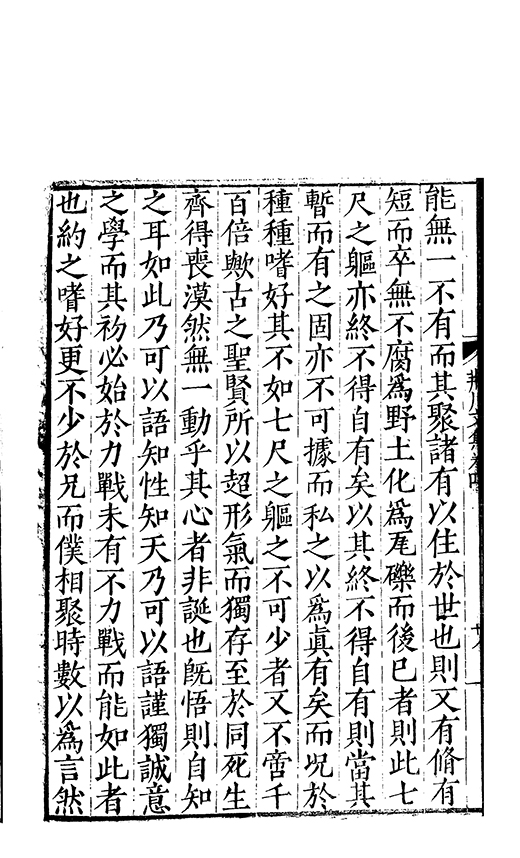 能無一不有而其聚諸有以住於世也則又有脩有
短而卒無不腐爲野土化爲瓦礫而後已者則此七
尺之軀亦終不得自有矣以其終不得自有則當其
暫而有之固亦不可據而私之以爲眞有矣而况於
種種嗜好其不如七尺之軀之不可少者又不啻千
百倍歟古之聖賢所以超形氣而獨存至於同死生
齊得喪漠然無一動乎其心者非誕也旣悟則自知
之耳如此乃可以語知性知天乃可以語謹獨誠意
之學而其初必始於力戰未有不力戰而能如此者
也約之嗜好更不少於兄而僕相聚時數以爲言然